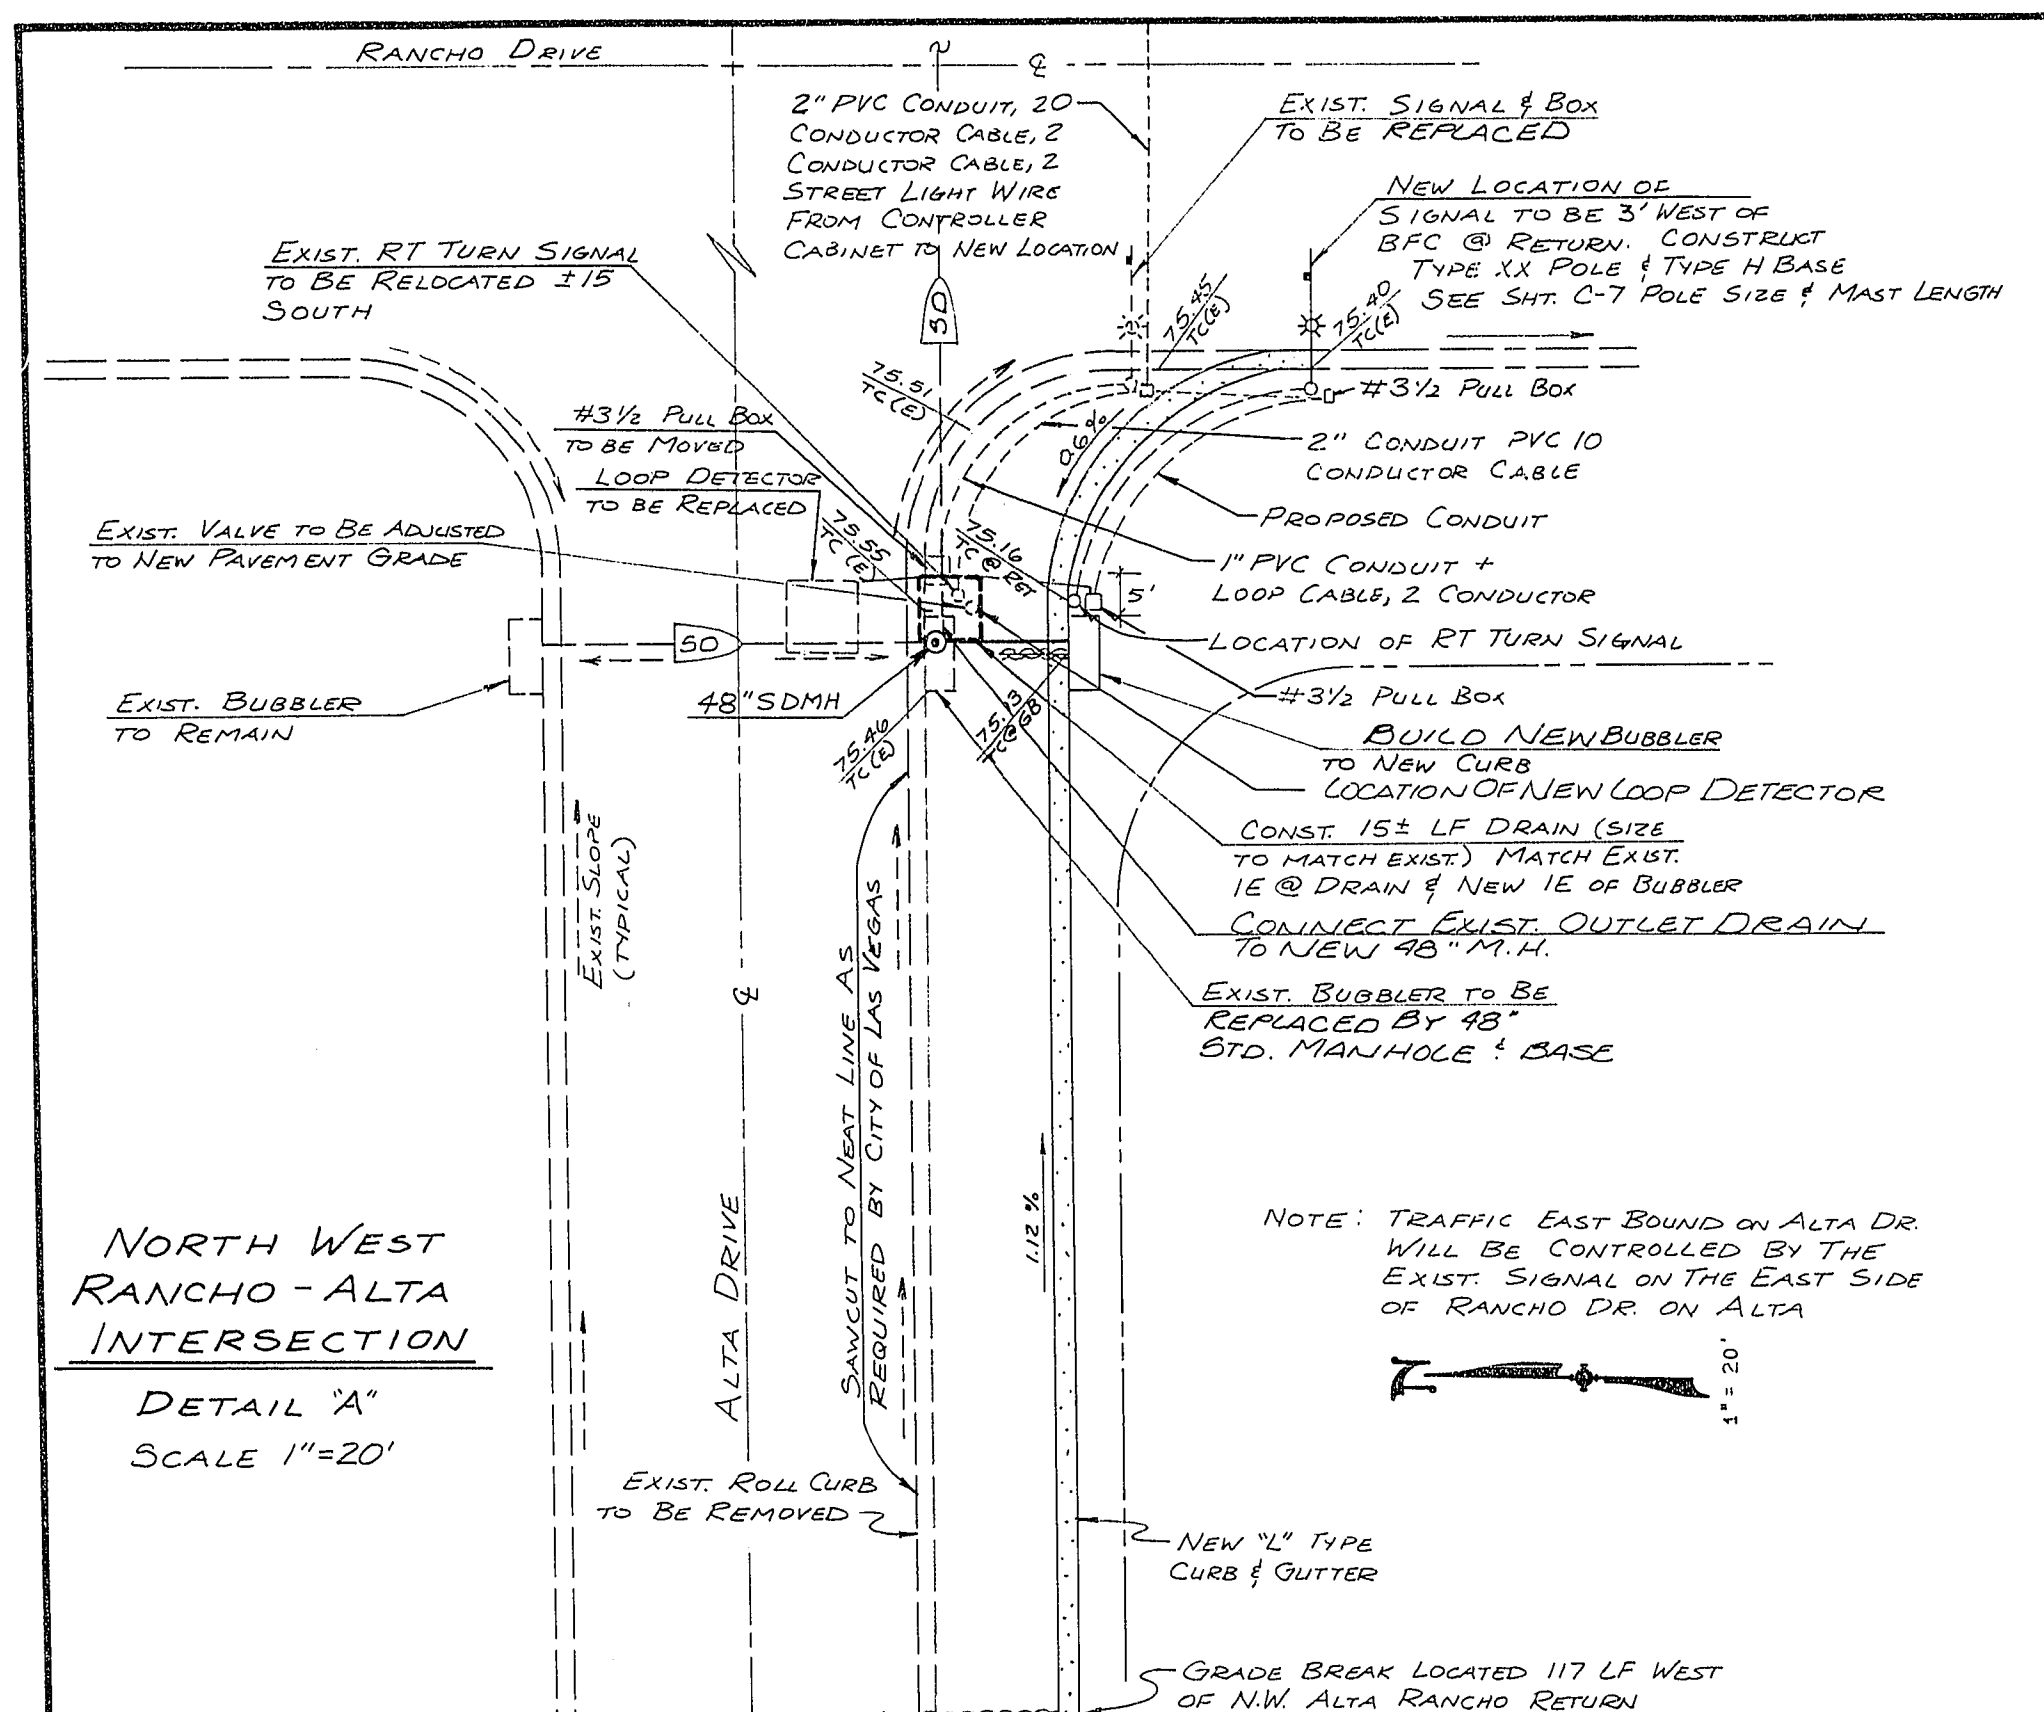 RANCHO DRIVE
℄
2" PVC CONDUIT, 20
CONDUCTOR CABLE, 2
CONDUCTOR CABLE, 2
STREET LIGHT WIRE
FROM CONTROLLER
CABINET TO NEW LOCATION
EXIST. SIGNAL & BOX
TO BE REPLACED
NEW LOCATION OF
SIGNAL TO BE 3' WEST OF
BFC @ RETURN. CONSTRUCT
TYPE XX POLE & TYPE H BASE
SEE SHT. C-7 POLE SIZE & MAST LENGTH
EXIST. RT TURN SIGNAL
TO BE RELOCATED ±15
SOUTH
SD
75.45
TC(E)
75.40
TC(E)
75.51
TC(E)
#3 1/2 PULL BOX
#3 1/2 PULL BOX
TO BE MOVED
0.6%
2" CONDUIT PVC 10
CONDUCTOR CABLE
LOOP DETECTOR
TO BE REPLACED
75.55
TC(E)
75.16
TC @ RET
PROPOSED CONDUIT
EXIST. VALVE TO BE ADJUSTED
TO NEW PAVEMENT GRADE
1" PVC CONDUIT +
LOOP CABLE, 2 CONDUCTOR
5'
SD
LOCATION OF RT TURN SIGNAL
#3 1/2 PULL BOX
EXIST. BUBBLER
TO REMAIN
48" SDMH
75.46
TC(E)
75.13
TC@GB
BUILD NEW BUBBLER
TO NEW CURB
LOCATION OF NEW LOOP DETECTOR
CONST. 15± LF DRAIN (SIZE
TO MATCH EXIST.) MATCH EXIST.
IE @ DRAIN & NEW IE OF BUBBLER
CONNECT EXIST. OUTLET DRAIN
TO NEW 48" M.H.
EXIST. BUBBLER TO BE
REPLACED BY 48"
STD. MANHOLE & BASE
EXIST. SLOPE
(TYPICAL)
℄
ALTA DRIVE
SAWCUT TO NEAT LINE AS
REQUIRED BY CITY OF LAS VEGAS
1.12%
NOTE: TRAFFIC EAST BOUND ON ALTA DR.
WILL BE CONTROLLED BY THE
EXIST. SIGNAL ON THE EAST SIDE
OF RANCHO DR. ON ALTA
Z
1" = 20'
NORTH WEST
RANCHO - ALTA
INTERSECTION
DETAIL "A"
SCALE 1"=20'
EXIST. ROLL CURB
TO BE REMOVED
NEW "L" TYPE
CURB & GUTTER
GRADE BREAK LOCATED 117 LF WEST
OF N.W. ALTA RANCHO RETURN